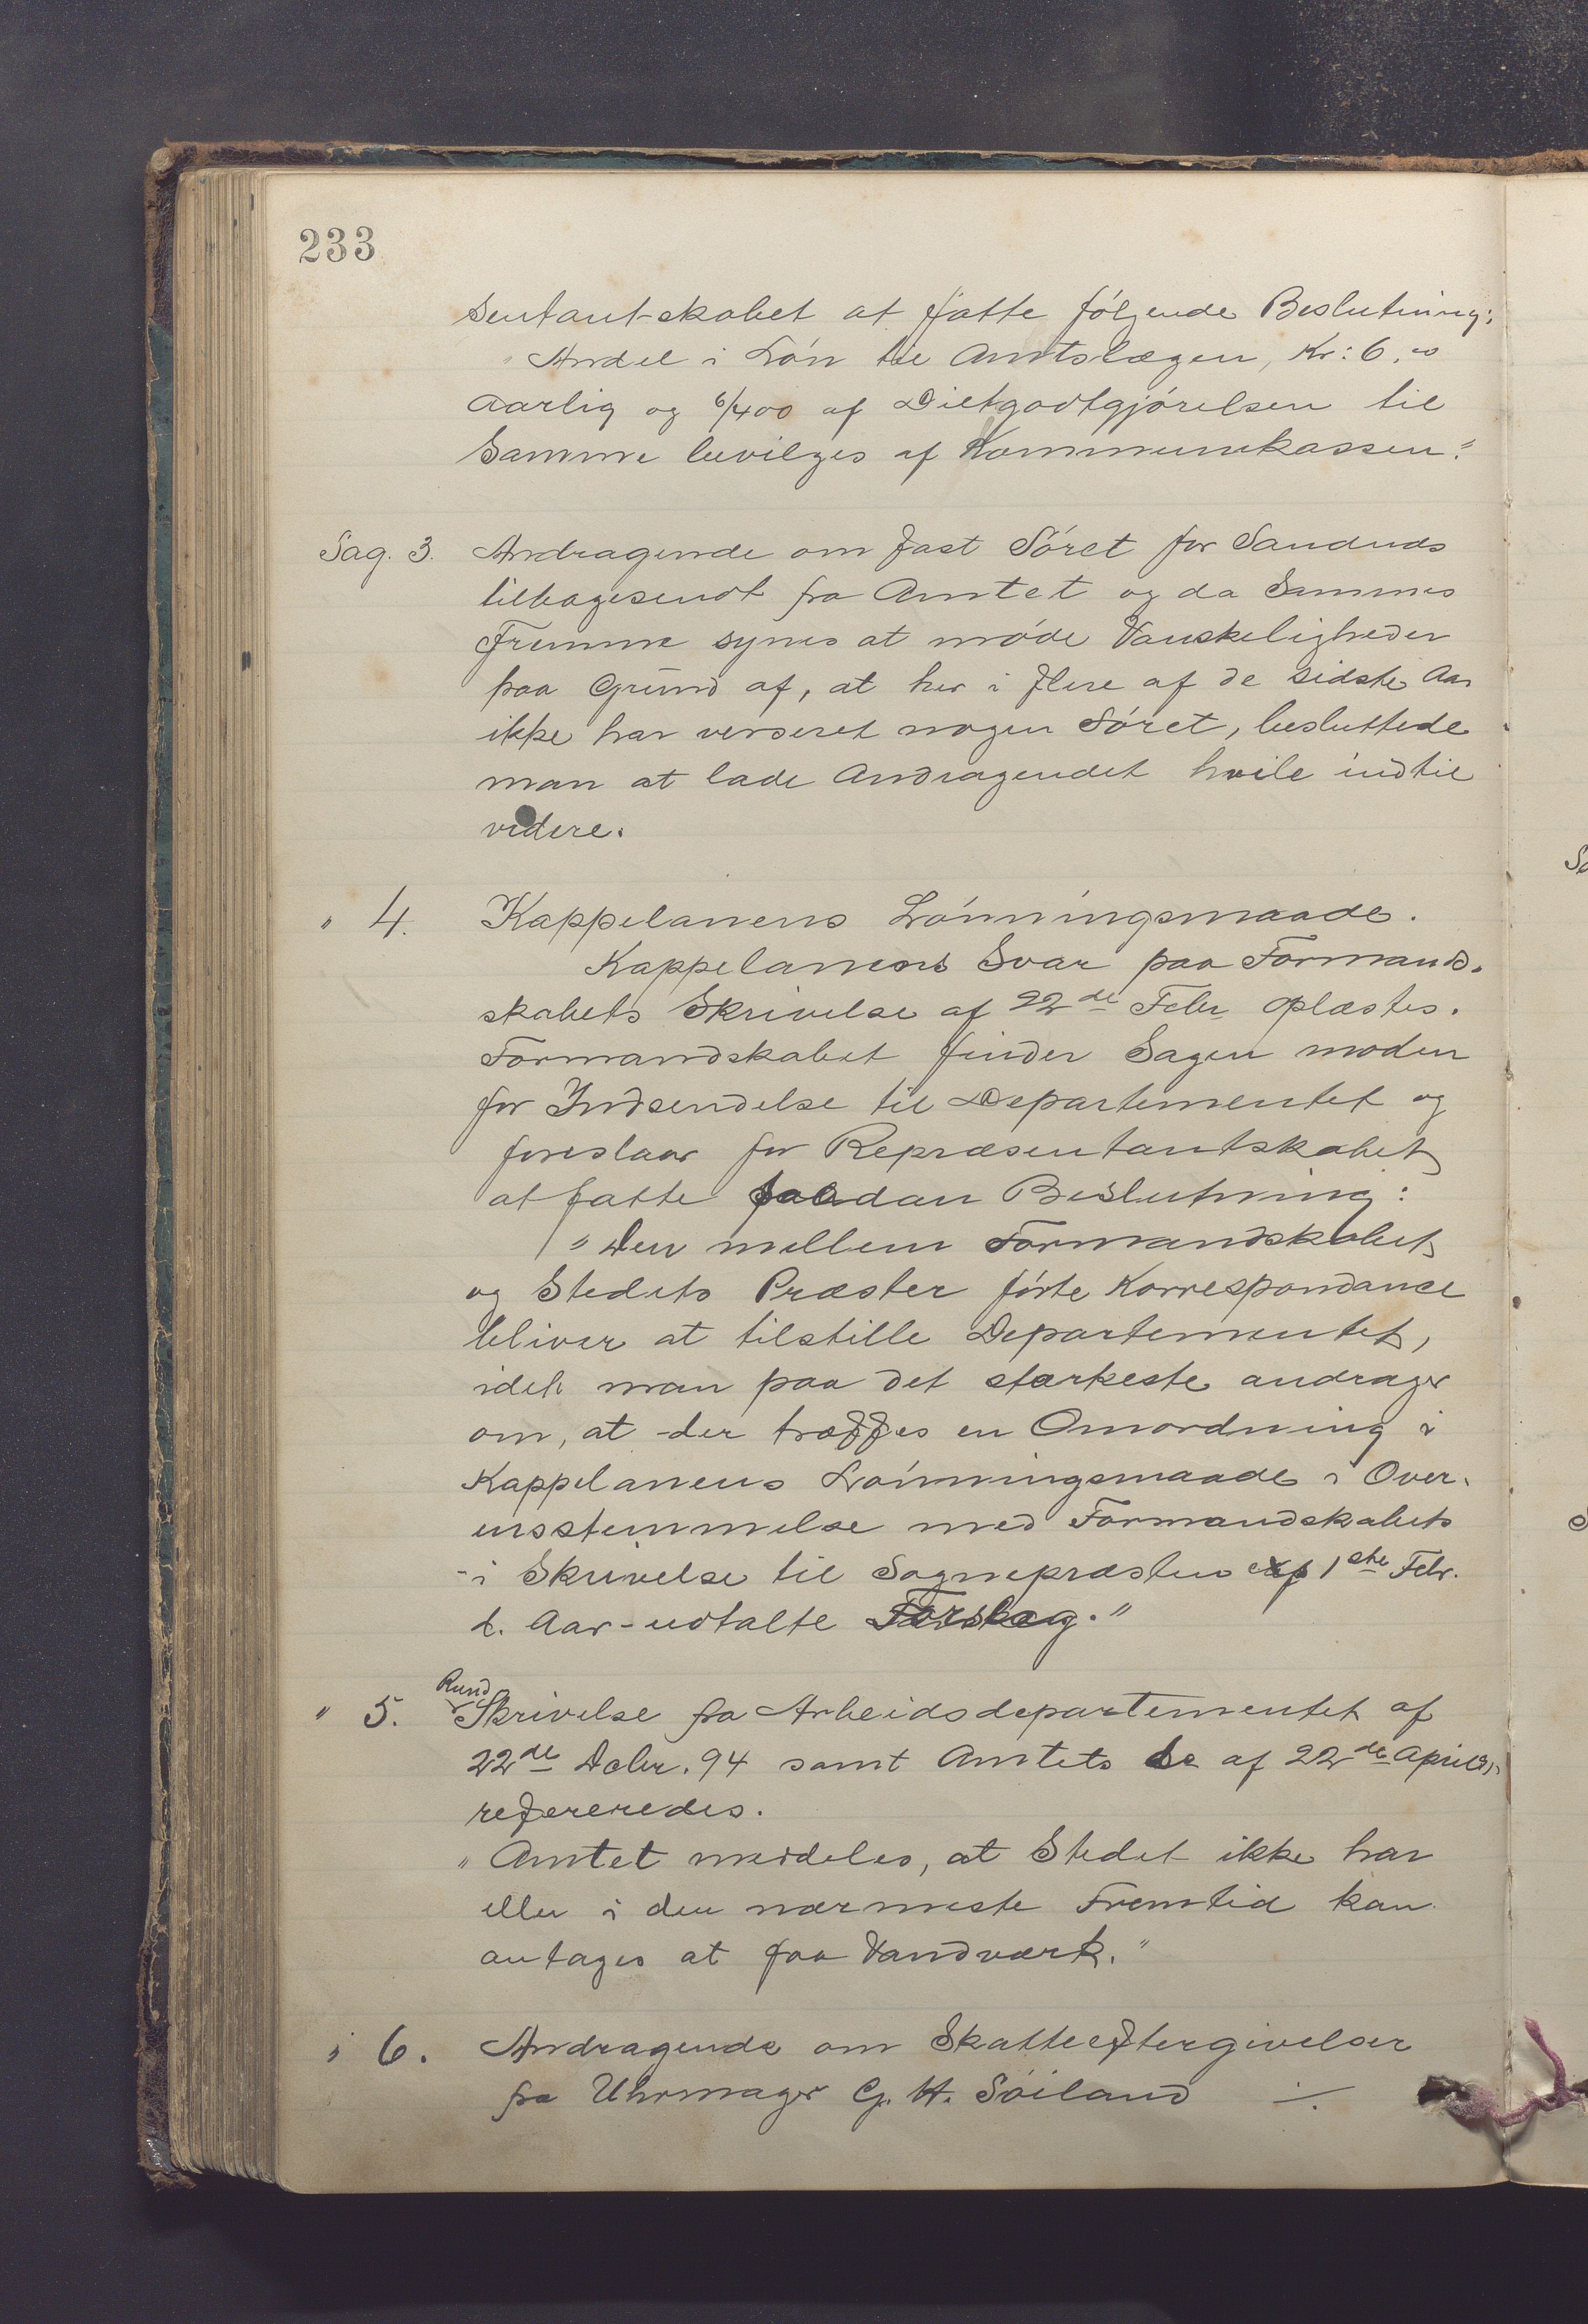 233
sentantskabet at fatte følgende Beslutning:
"Andel i Løn til Amtslægen, Kr: 6,00
aarlig og 6/400 af Dietgodtgjørelsen til
Samme bevilges af Kommunekassen."
Sag. 3. Andragende om fast Søret for Sandnds
tilbagesendt fra Amtet og da Sammes
Fremme synes at møde Vanskeligheder
paa Grund af, at her i flere af de sidste Aar
ikke har verseret nogen Søret, besluttede
man at lade Andragendet hvile indtil
videre.
" 4. Kappelanens Lønningsmaade.
Kappelanens Svar paa Formand-
skabets Skrivelse af 22de Febr oplæstes.
Formandskabet finder Sagen moden
for Indsendelse til Departementet og
foreslaar for Repræsentantskabet
at fatte saadan Beslutning:
"Den mellem Formandskabet
og Stedets Præster førte Korrespondance
bliver at tilstille Departementet,
idet man paa det stærkeste andrager
om, at der træffes en Omordning i
Kappelanens Lønningsmaade i Over-
ensstemmelse med Formandskabets
- i Skrivelse til Sognepræsten af 1ste Febr.
d. Aar - udtalte Forslag."
" 5. Rund
Skrivelse fra Arbeidsdepartementet af
22de Debr. 94 samt Amtets do af 22de April
refereredes.
"Amtet meddeles, at Stedet ikke har
eller i den nærmeste Fremtid kan
antages at faa Vandværk."
" 6. Andragende om Skatteeftergivelser
fra Uhrmager G. H. Søiland ./.